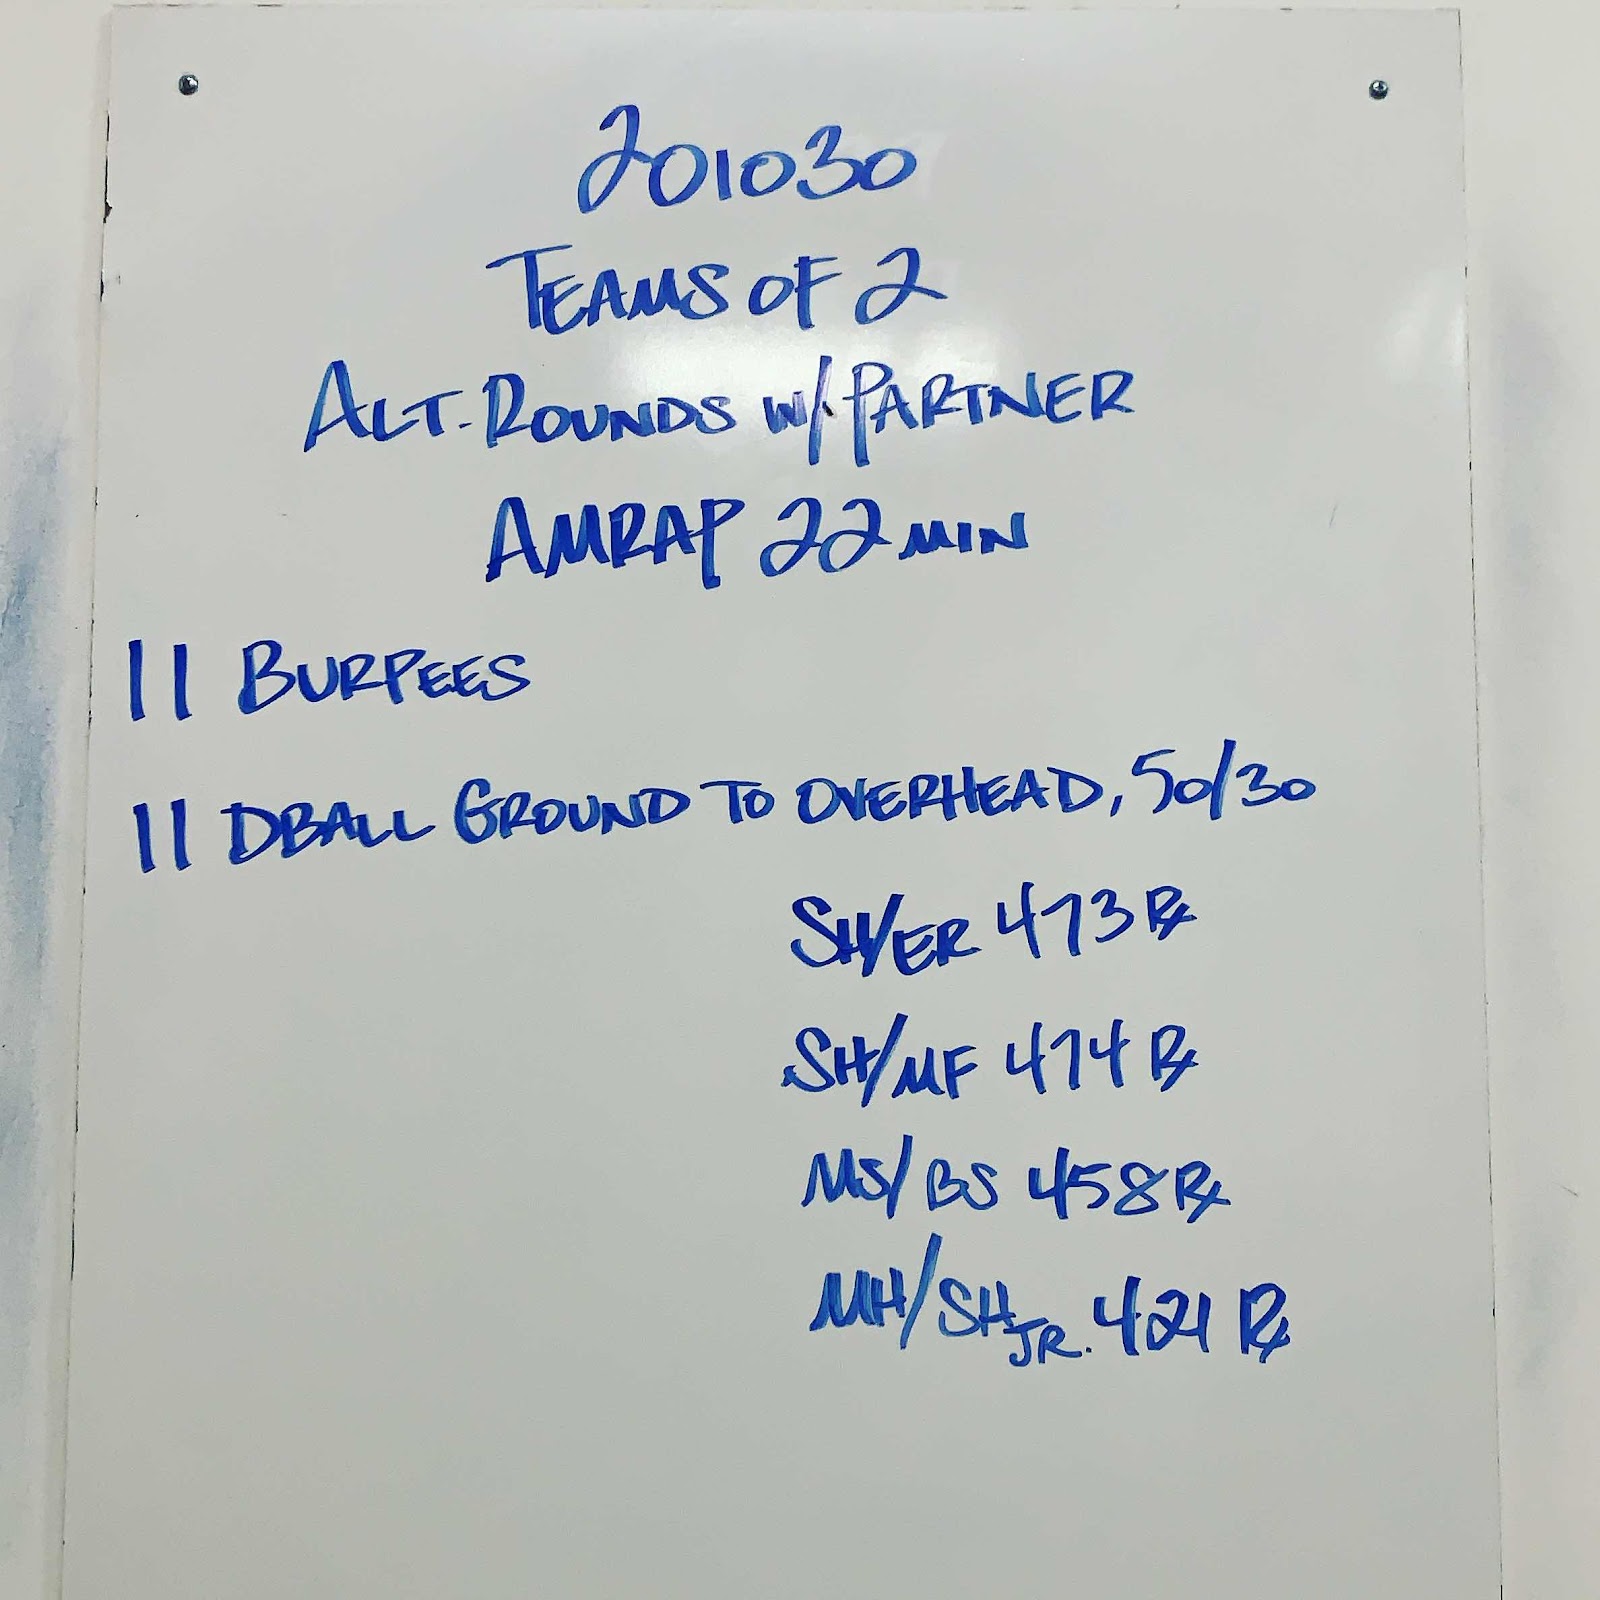 201030
TEAMS OF 2
ALT. ROUNDS W/ PARTNER
AMRAP 22 MIN
11 BURPEES
11 DBALL GROUND TO OVERHEAD, 50/30
SH/ER 473 Rx
SH/MF 474 Rx
MS/BS 458 Rx
MH/SH JR. 421 Rx